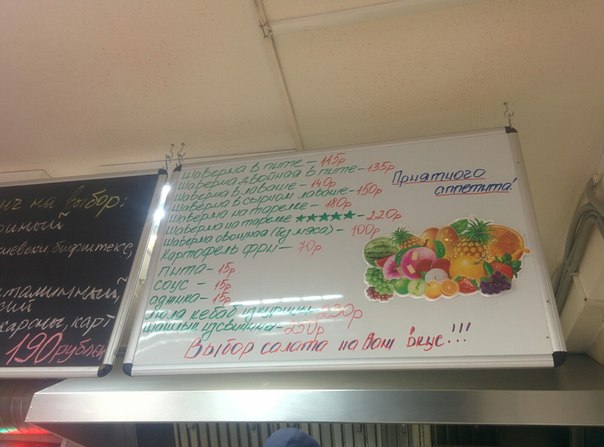 на выбор:
бифштекс,
карт
190 рублей
Шаверма в пите - 115р
Шаверма двойная в пите - 135р
Шаверма в лаваше - 140р
Шаверма в сырном лаваше - 150р
Шаверма на тарелке - 180р
Шаверма на тарелке ★★★★★ - 220р
Шаверма овощная (без мяса) - 100р
Картофель фри - 70р
Пита - 15р
Соус - 15р
Аджика - 15р
Люля кебаб из курицы - 230р
Шашлык из свинины - 250р
Выбор салата на ваш вкус!!!
Приятного
аппетита!